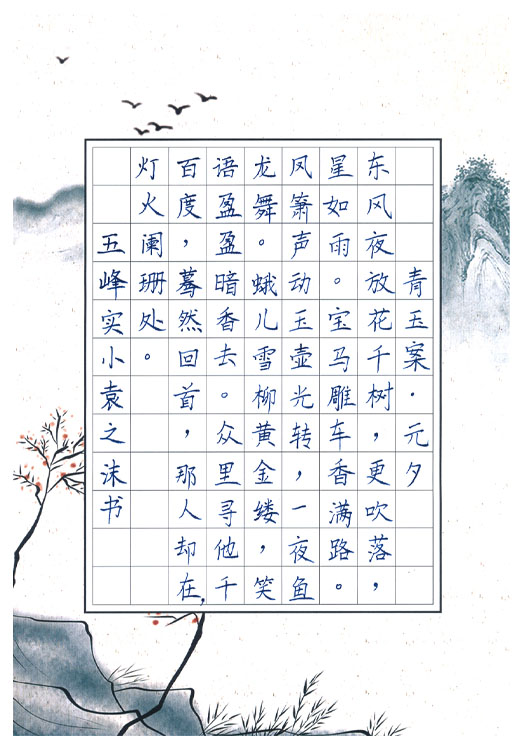 青玉案·元夕
东风夜放花千树，更吹落，
星如雨。宝马雕车香满路。
凤箫声动玉壶光转，一夜鱼
龙舞。蛾儿雪柳黄金缕，笑
语盈盈暗香去。众里寻他千
百度，蓦然回首，那人却在，
灯火阑珊处。
五峰实小袁之沫书